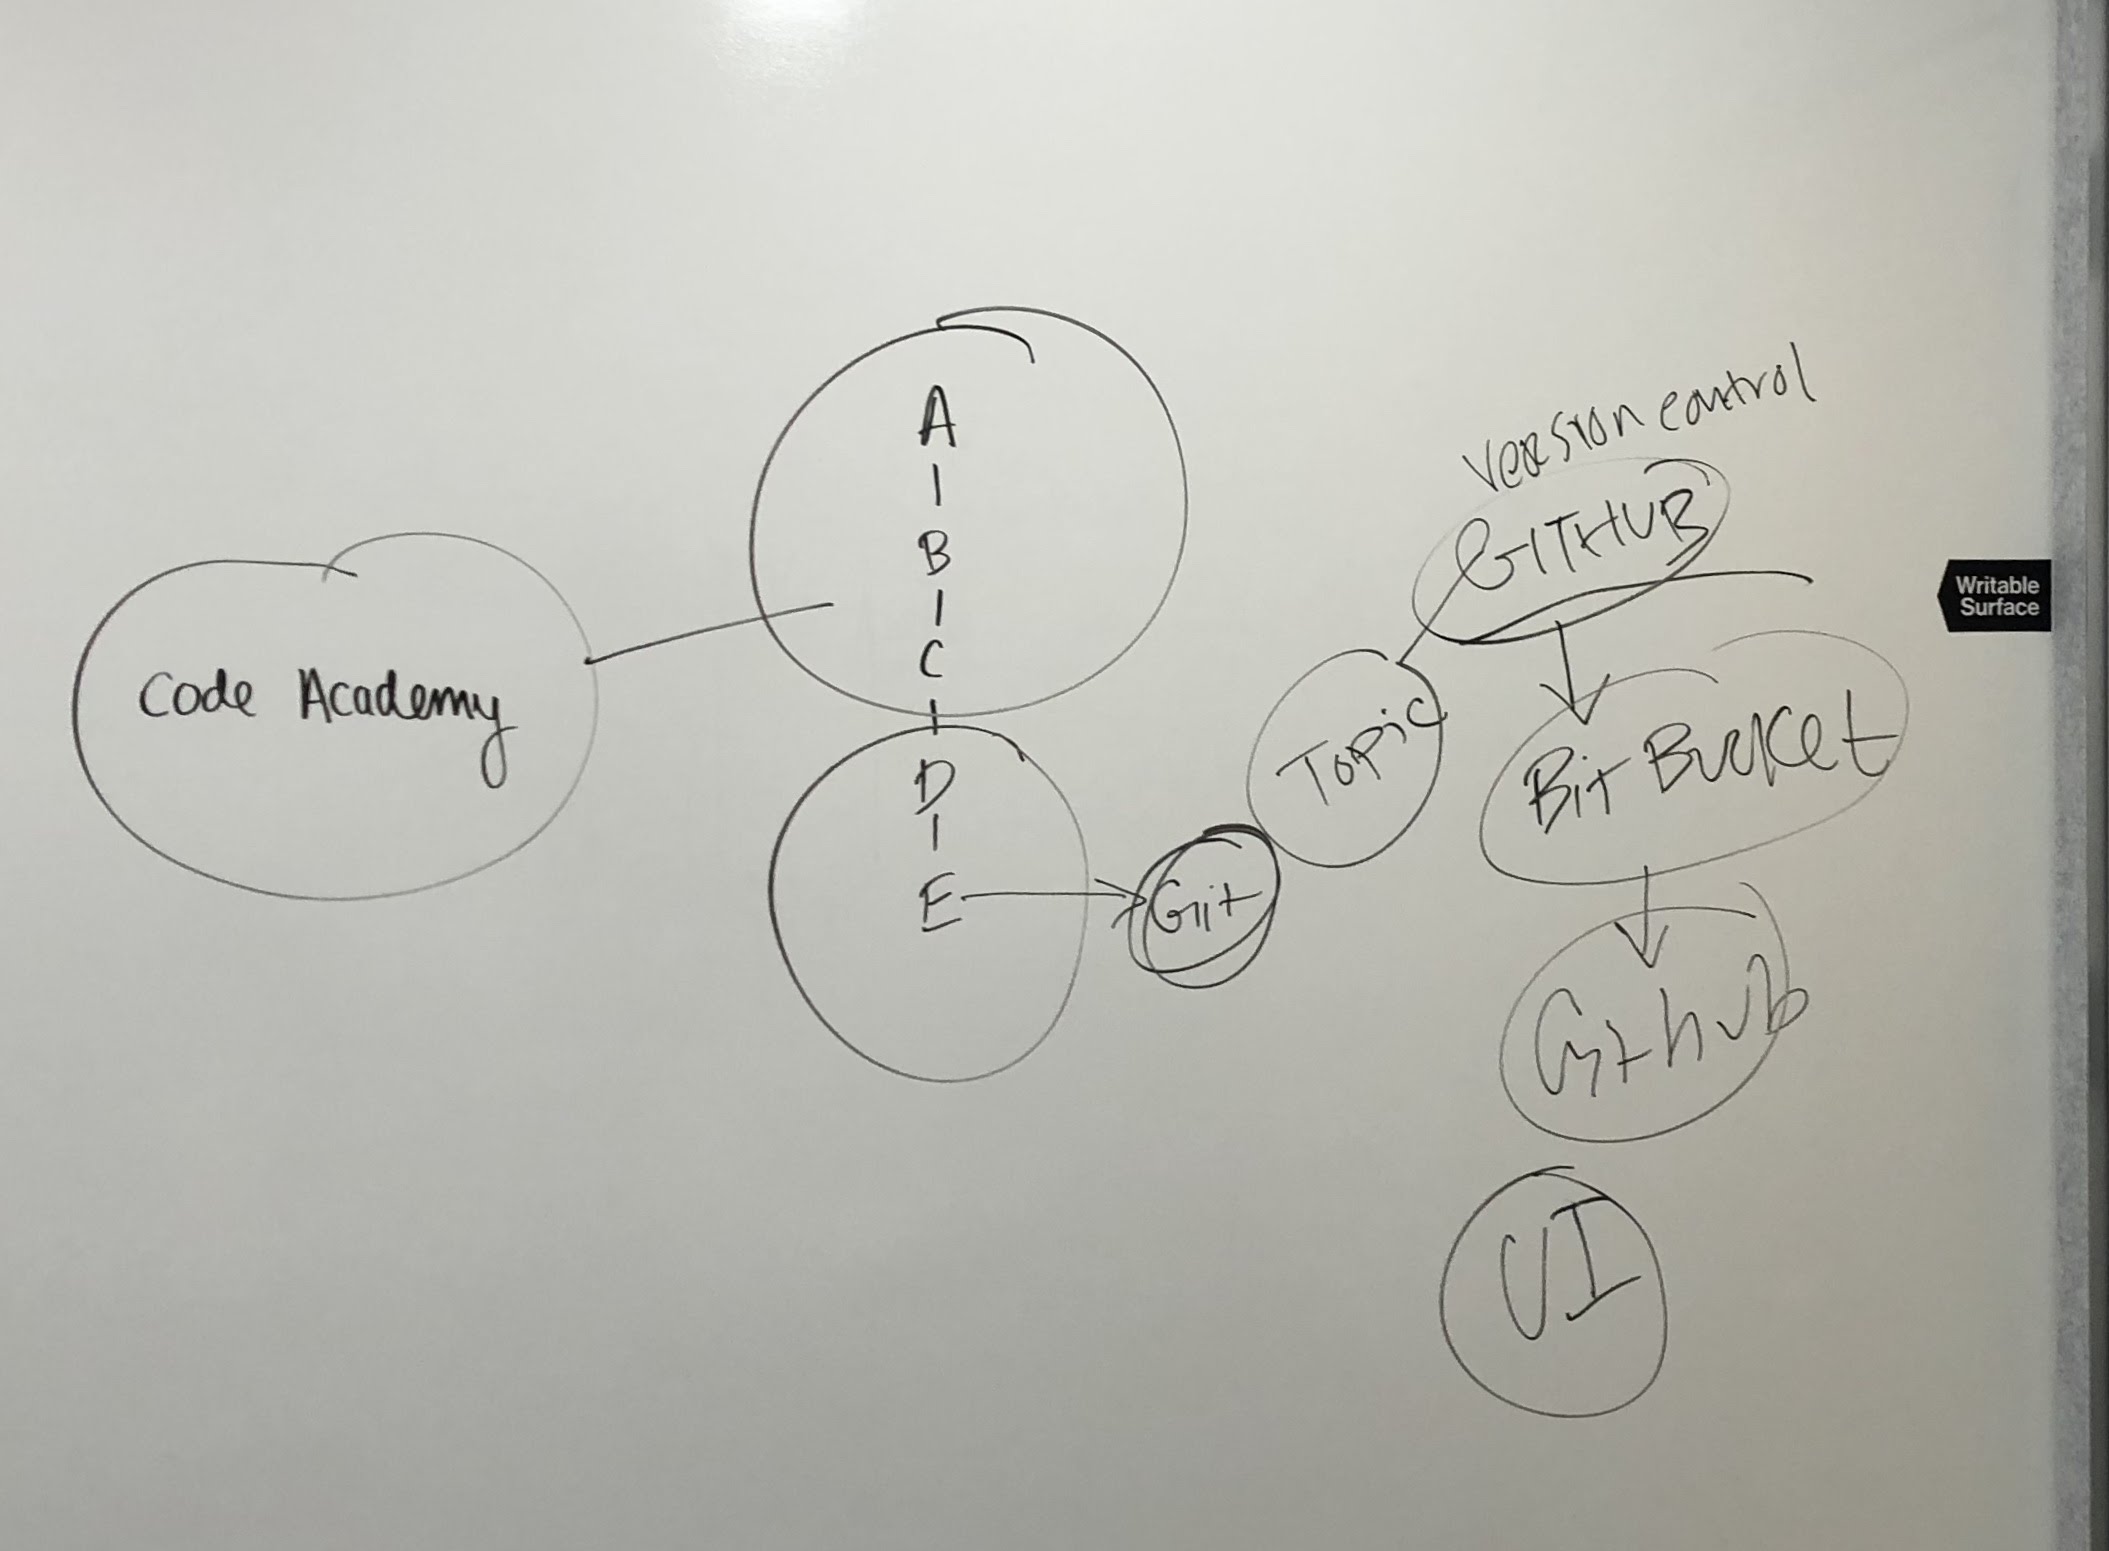 Code Academy
A
B
C
D
E
Git
Topic
version control
GITHUB
Bit Bucket
Github
UI
Writable
Surface